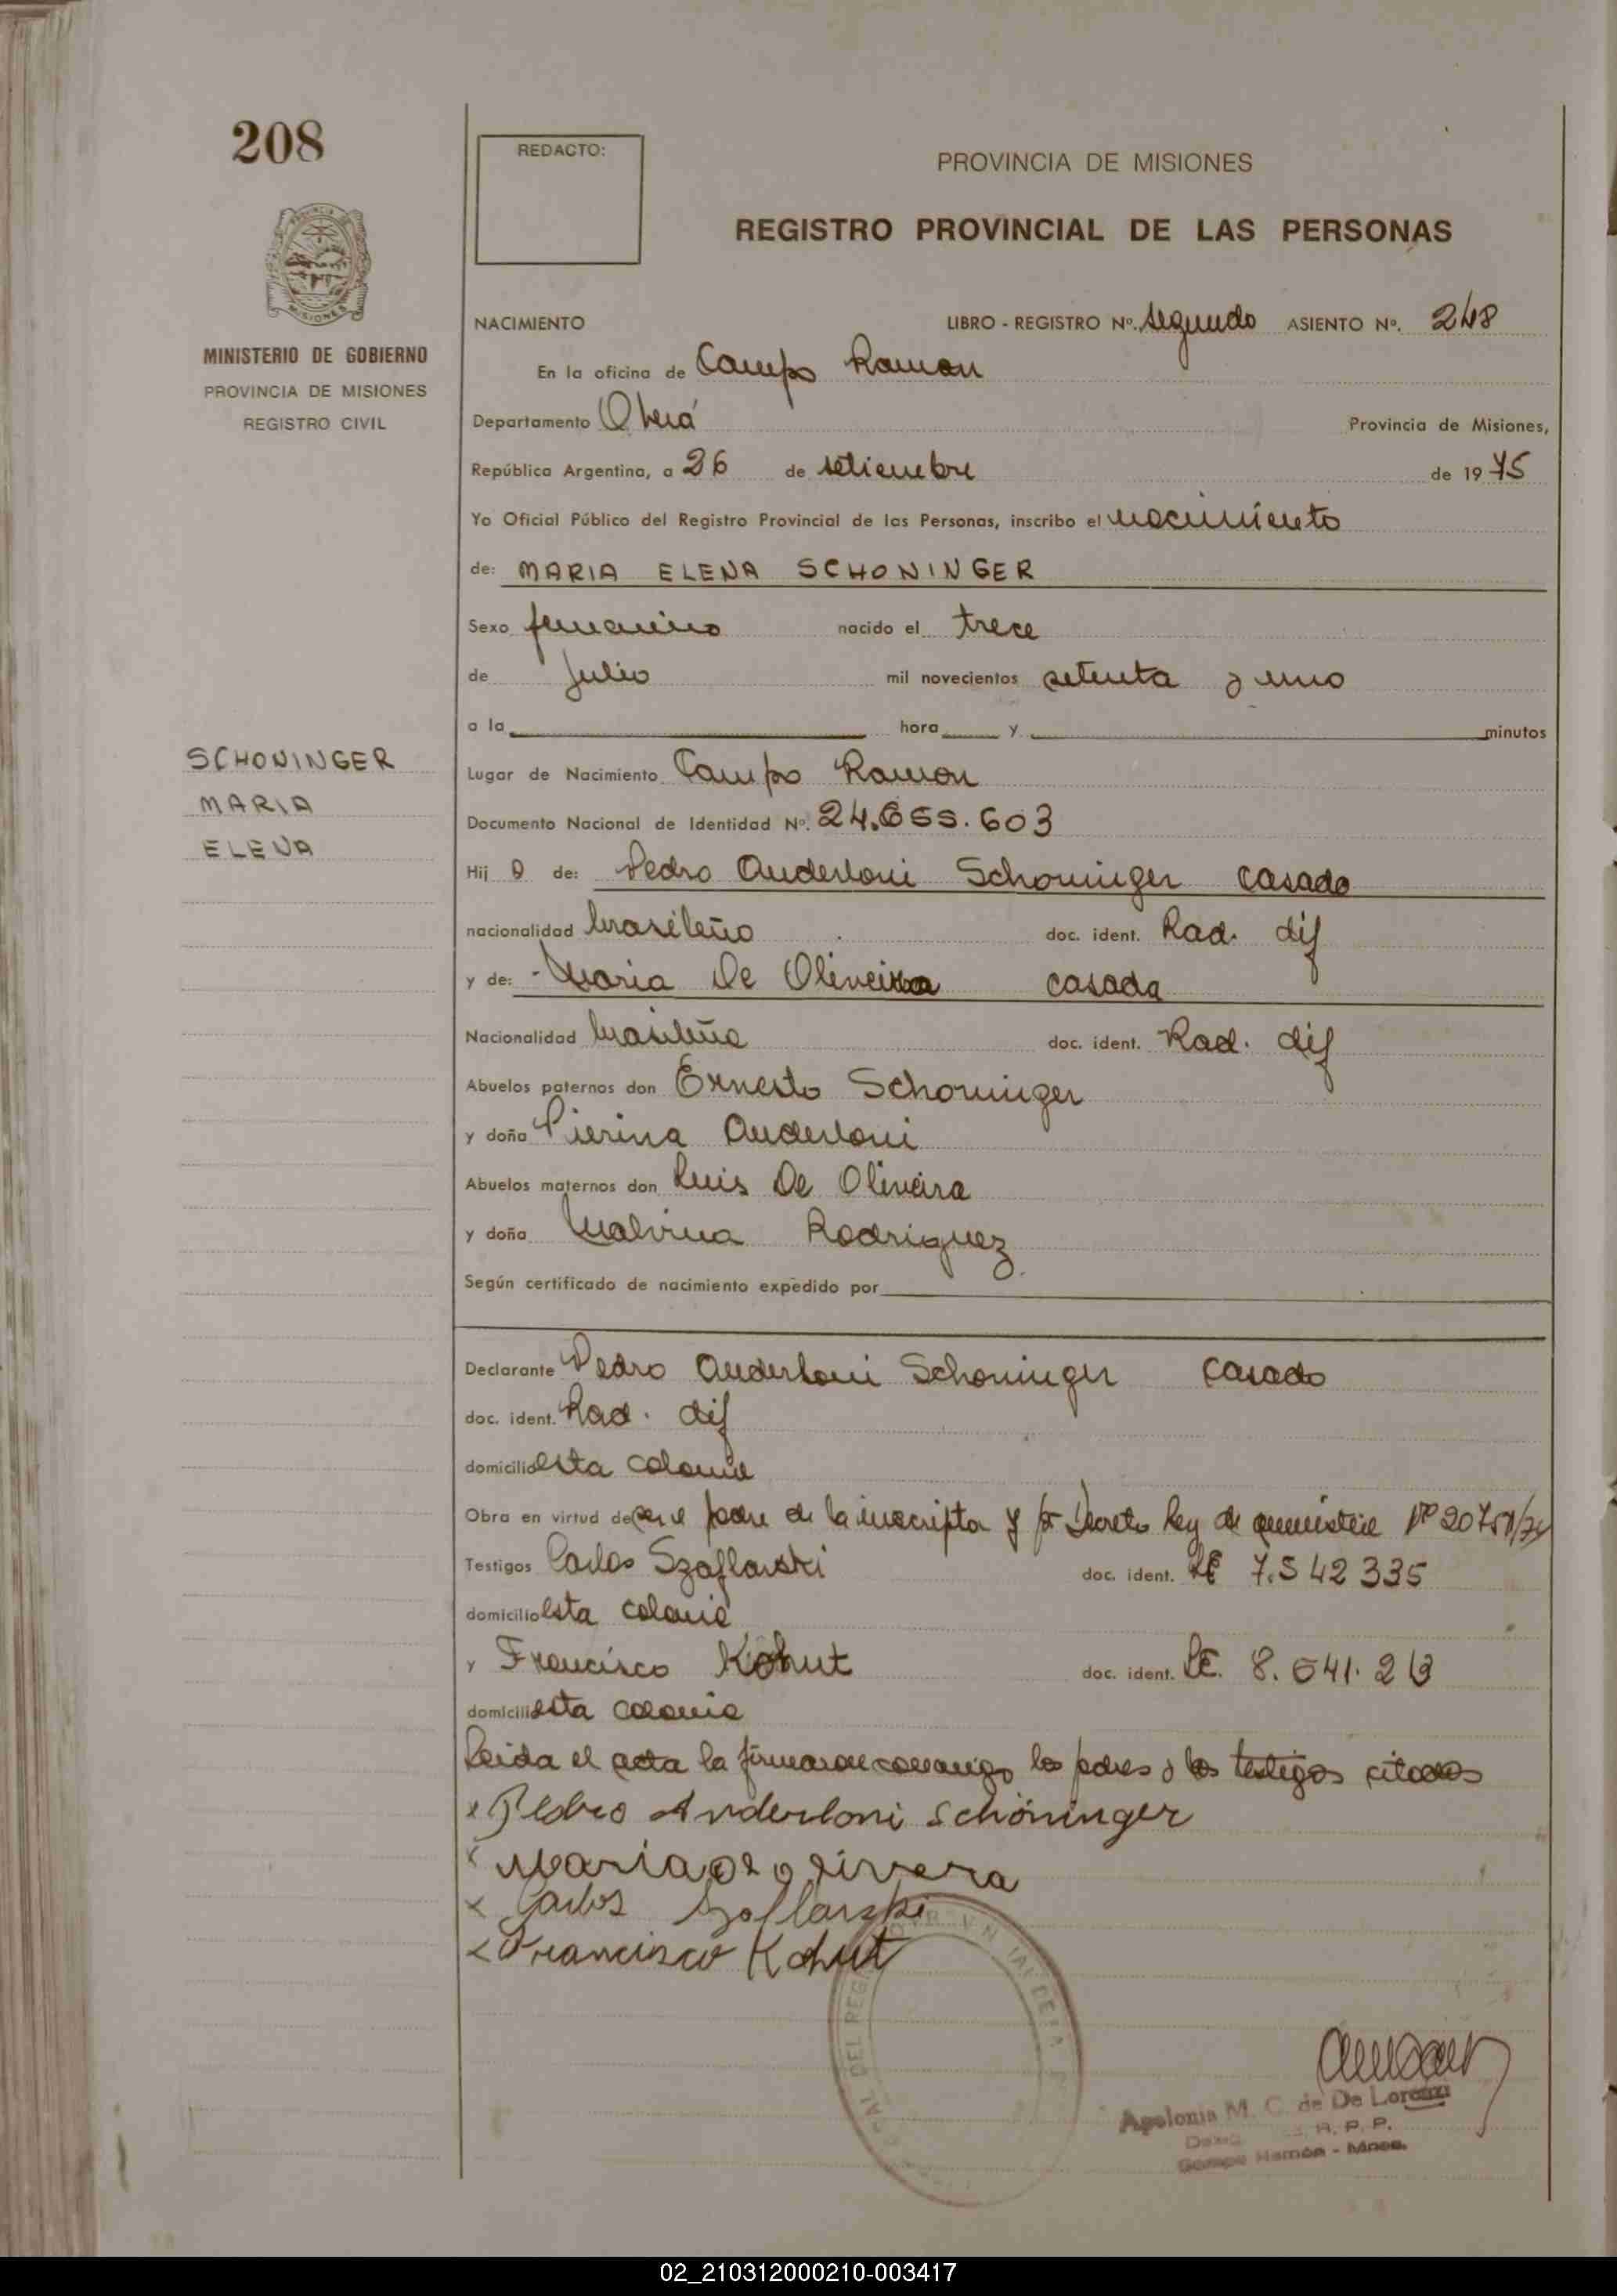 208
REDACTO:
PROVINCIA DE MISIONES
REGISTRO PROVINCIAL DE LAS PERSONAS
MISIONES
MINISTERIO DE GOBIERNO
PROVINCIA DE MISIONES
REGISTRO CIVIL
NACIMIENTO LIBRO - REGISTRO Nº. segundo ASIENTO Nº. 248
En la oficina de Campo Ramon
Departamento Oberá Provincia de Misiones,
República Argentina, a 26 de setiembre de 1975
Yo Oficial Público del Registro Provincial de las Personas, inscribo el nacimiento
de: MARIA ELENA SCHONINGER
Sexo femenino nacido el trece
de Julio mil novecientos setenta y uno
a la hora y minutos
SCHONINGER
MARIA
ELENA
Lugar de Nacimiento Campo Ramon
Documento Nacional de Identidad Nº. 24.655.603
Hij a de: Pedro Anderloni Schoninger casado
nacionalidad brasileño doc. ident. Rad. dif
y de: Maria De Oliveira casada
Nacionalidad brasileña doc. ident. Rad. dif
Abuelos paternos don Ernesto Schoninger
y doña Pierina Anderloni
Abuelos maternos don Luis De Oliveira
y doña Malvina Rodriguez
Según certificado de nacimiento expedido por
Declarante Pedro Anderloni Schoninger casado
doc. ident. Rad. dif
domicilio esta colonia
Obra en virtud de ser el padre de la inscripta y pr Decreto Ley de amnistia Nº 20751/74
Testigos Carlos Szaflarski doc. ident. LE 7.542335
domicilio esta colonia
y Francisco Kohut doc. ident. LE. 8.541.213
domicilio esta colonia
Leida el acta la firmaron conmigo los padres y los testigos citados
x Pedro Anderloni Schöninger
x Maria de olivera
x Carlos Szaflarski
x Francisco Kohut
Apolonia M. C. de De Lorenzi
R. P. P.
Campo Ramón - Mnes.
02_210312000210-003417